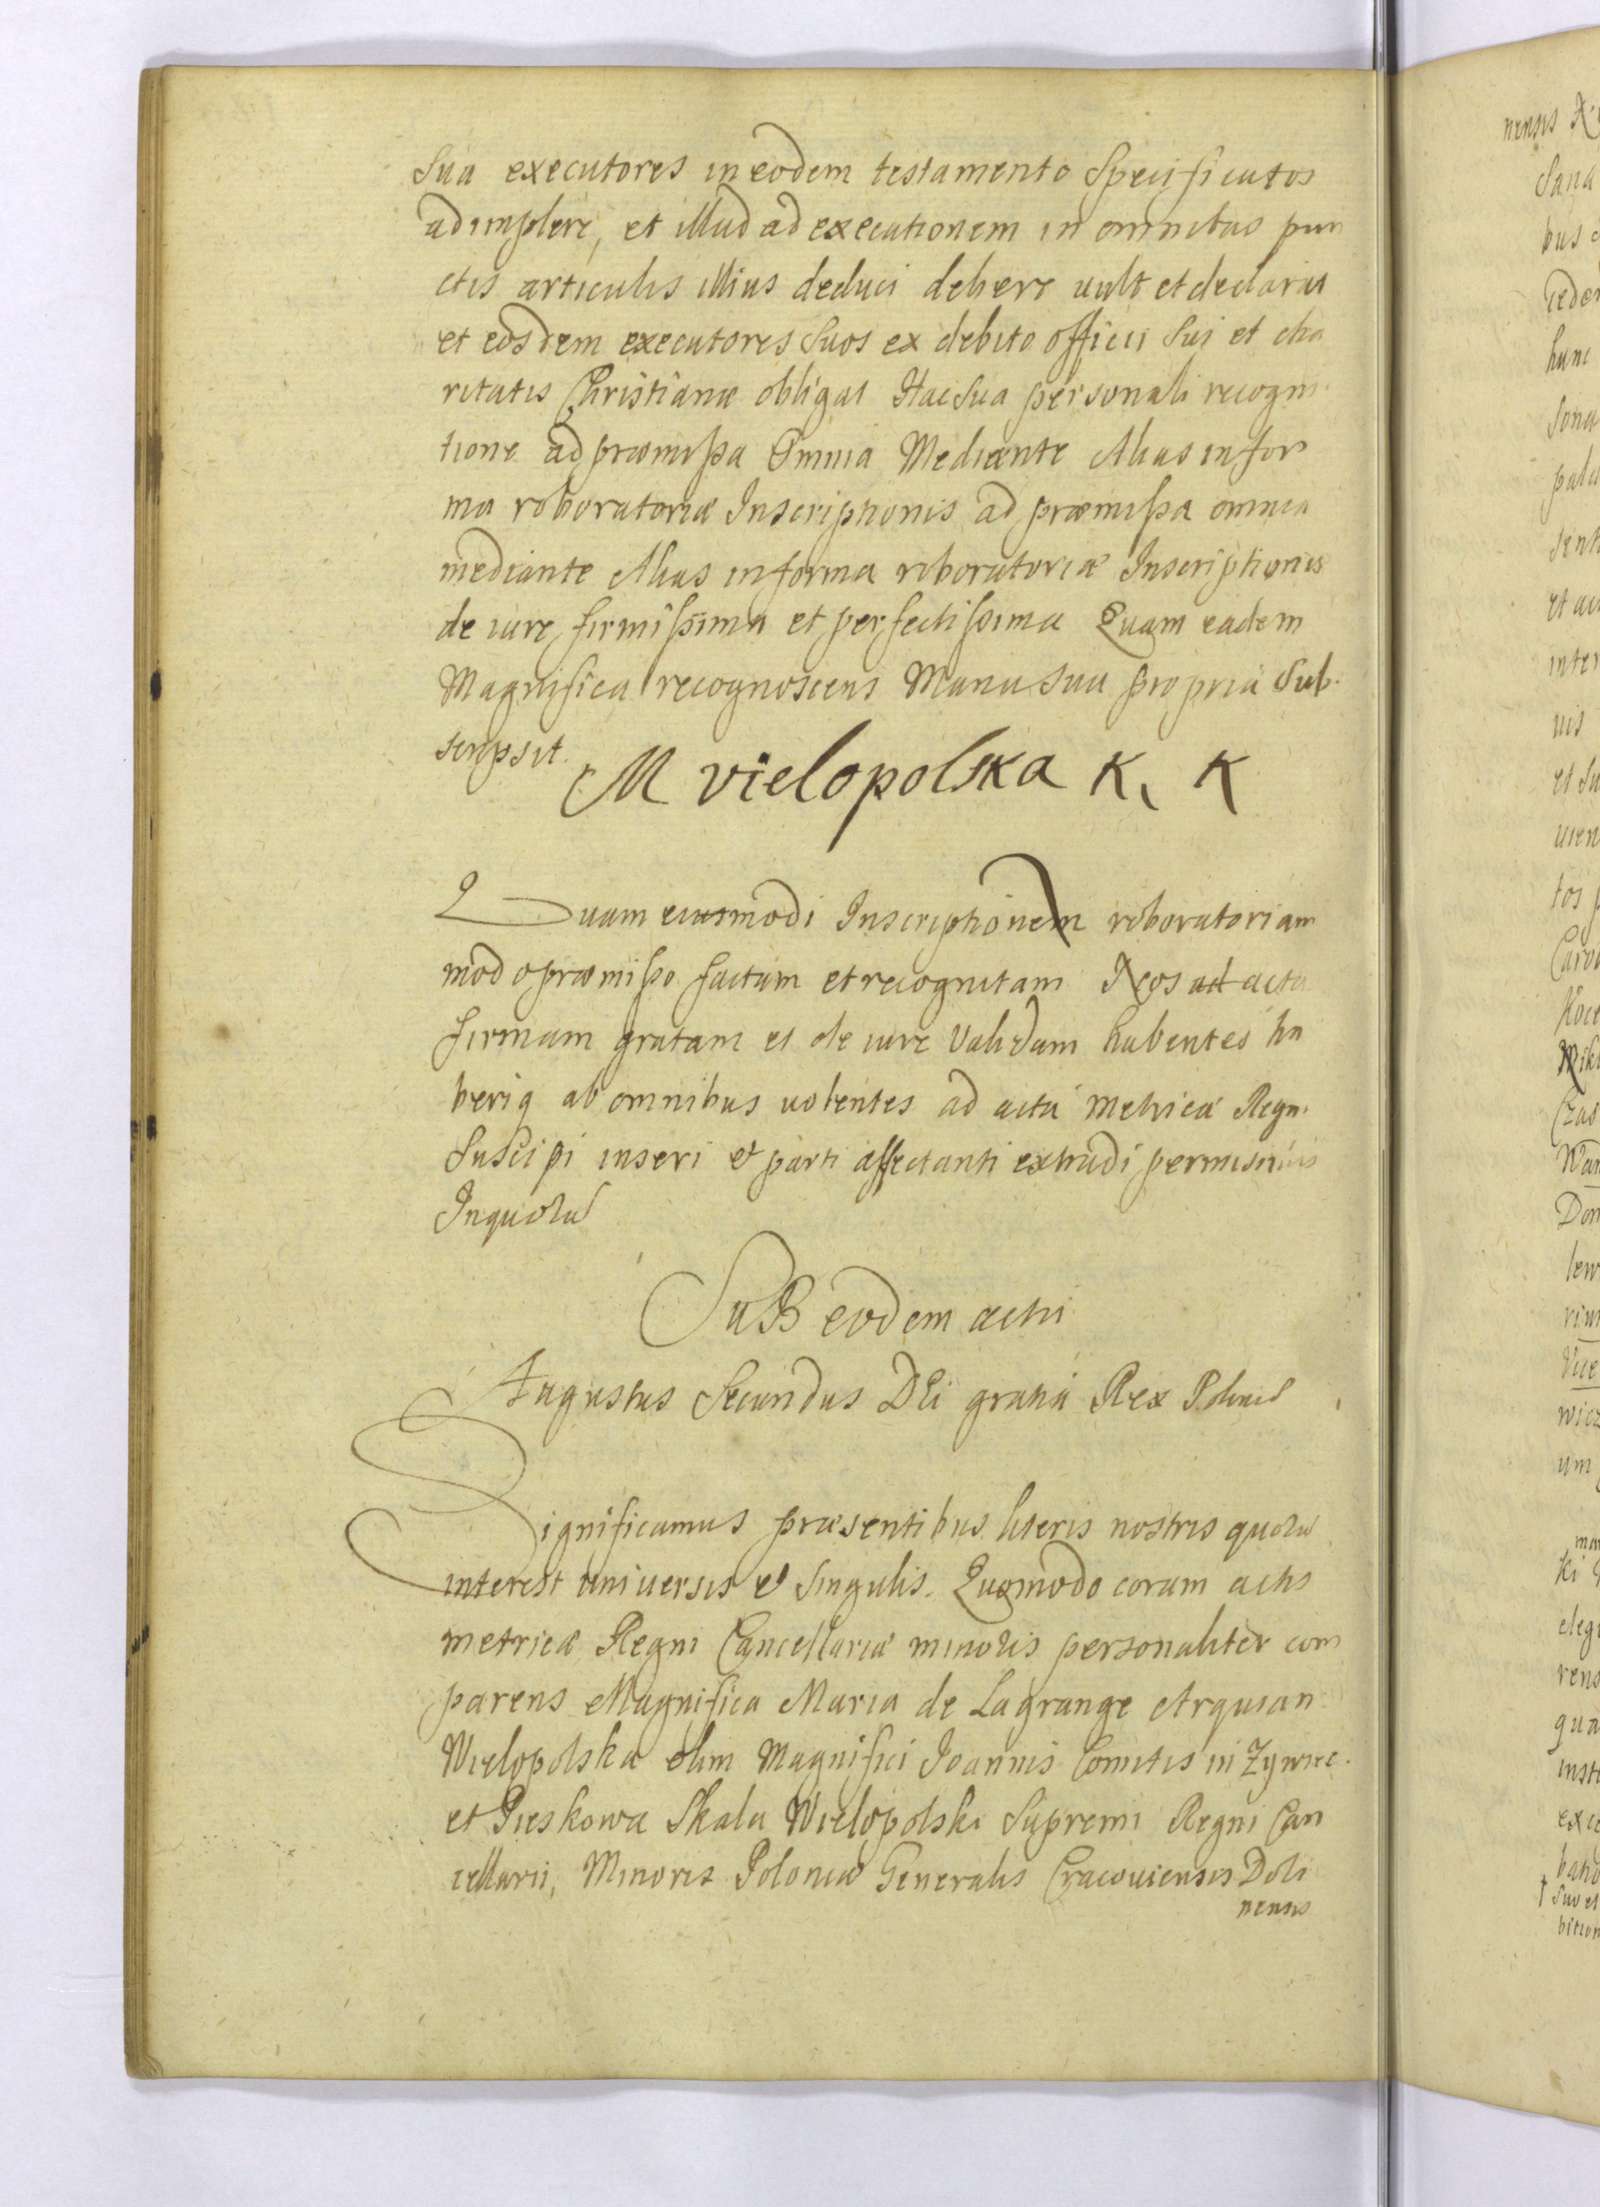 sua executores in eodem testamento specificatos
adimplere, et illud ad executionem in omnibus pun
ctis articulis illius deduci debere vult et declarat
et eosdem executores suos ex debito officii sui et cha
ritatis Christianæ obligat Hac sua personali recogni
tione ad præmissa Omnia Mediante Alias in for
ma roboratoriæ Inscriptionis ad præmissa omnia
mediante Alias in forma roboratoriæ Inscriptionis
de iure firmissima et perfectissima Quam eadem
Magnifica recognoscens Manu sua propria sub
scripsit.
M vielopolska K, K
Quam eiusmodi Inscriptionem roboratoriam
modo præmisso factam et recognitam Nos ad acta
firmam gratam et de iure validam habentes ha
beriq ab omnibus volentes ad acta Metricæ Regni
suscipi inseri et parti affectanti extradi permisimus
In quoru
SuB eodem actu
Augustus Secundus DEi gratia Rex Poloniæ
Significamus præsentibus literis nostris quoru
interest universis et singulis. Quomodo coram actis
metricæ Regni Cancellariæ minoris personaliter com
parens Magnifica Maria de Lagrange Arquian
Wielopolska olim Magnifici Joannis Comitis in Zywiec
et Pieskowa Skala Wielopolski Supremi Regni Can
cellarii, Minoris Poloniæ Generalis Cracoviensis Doli
nensis
nensis
sana
bus
ceder
hunc
inter
et su
tos
Czas
Don
wicz
um
ki
rens
qua